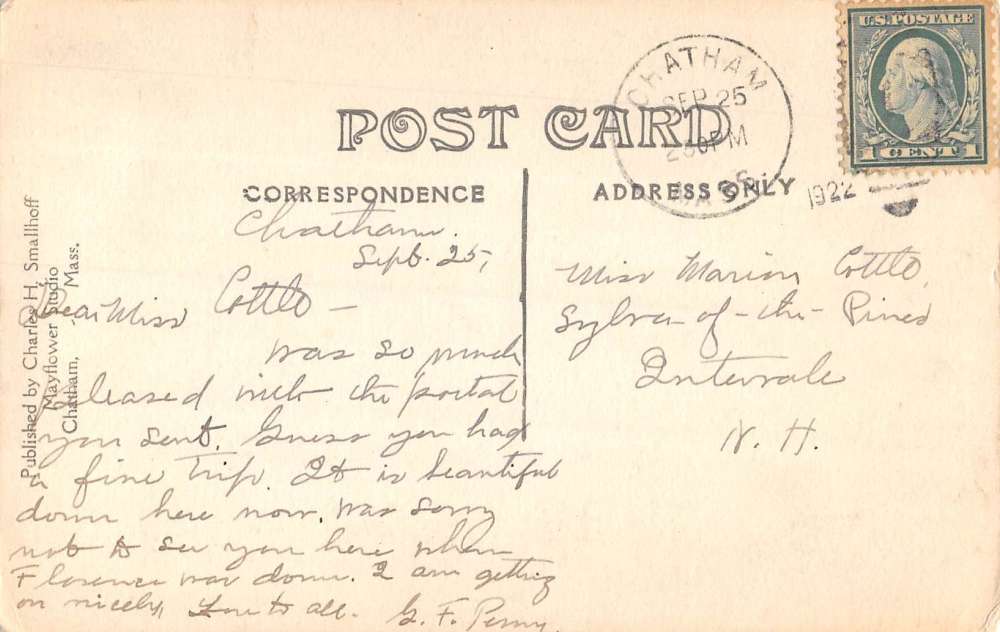 U.S. POSTAGE
1 CENT 1
CHATHAM
SEP 25
230PM
MASS.
1922
POST CARD
CORRESPONDENCE
ADDRESS ONLY
Published by Charles H. Smallhoff
Mayflower Studio
Chatham, Mass.
Chatham.
Sept. 25,
Dear Miss Cottle —
Was so much
pleased with the postal
you sent. Guess you had
a fine trip. It is beautiful
down here now. Was sorry
not to see you here when
Florence was down. I am getting
on nicely. Love to all. G. F. Penny
Miss Marion Cottle,
Sylva-of-the-Pines
Intervale
N. H.